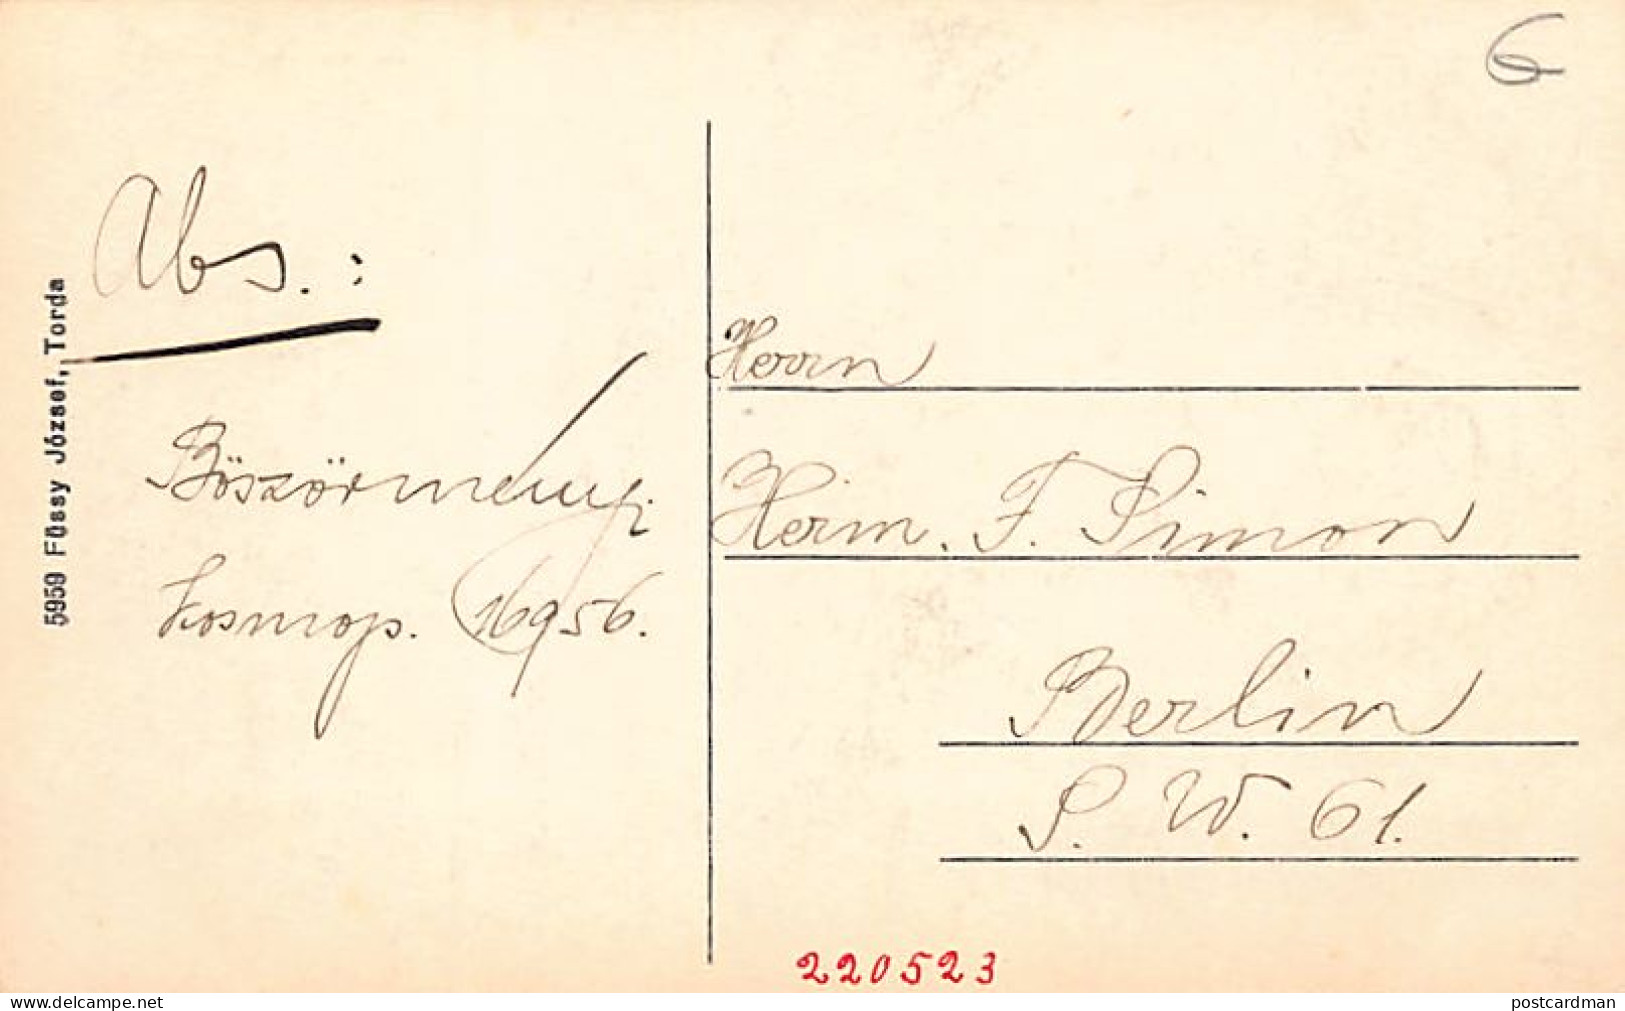 6
Abs.:
5959 Füssy József, Torda
Böszörményi
Kosmop. 16956.
Herrn
Herm. F. Simon
Berlin
S. W. 61.
220523
www.delcampe.net
postcardman